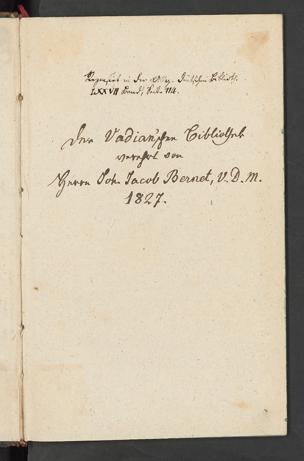 Recensirt in der Allg. deutschen Biblioth.
LXXVII Band, Seite 114.
Der Vadian'schen Bibliothek
verehrt von
Herrn Joh. Jacob Bernet, V. D. M.
1827.